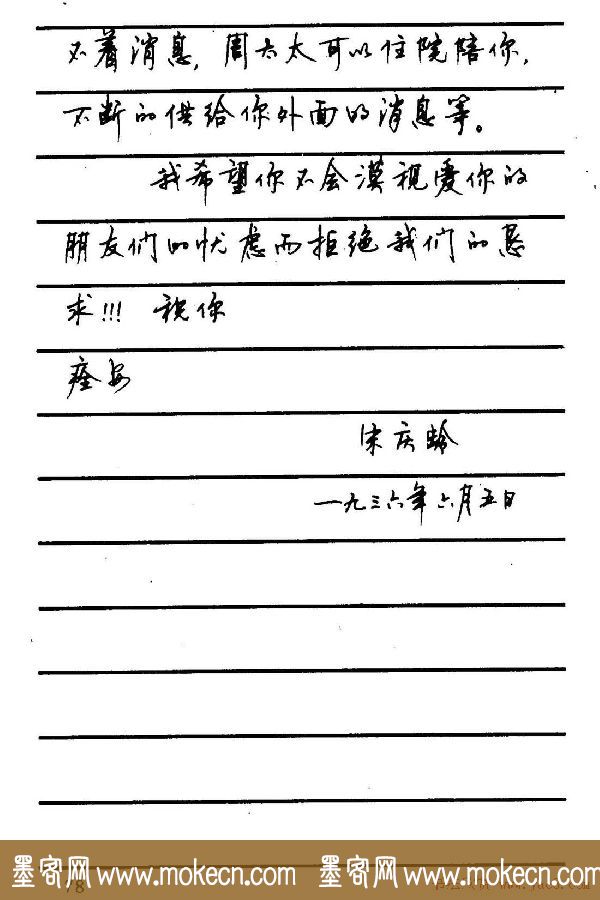 不着消息，周太太可以住院陪你，
不断的供给你外面的消息等。
我希望你不会漠视爱你的
朋友们的忧虑而拒绝我们的恳
求!!! 祝你
痊安
宋庆龄
一九三六年六月五日
墨客网 www.mokecn.com 墨客网 www.mokecn.com
78